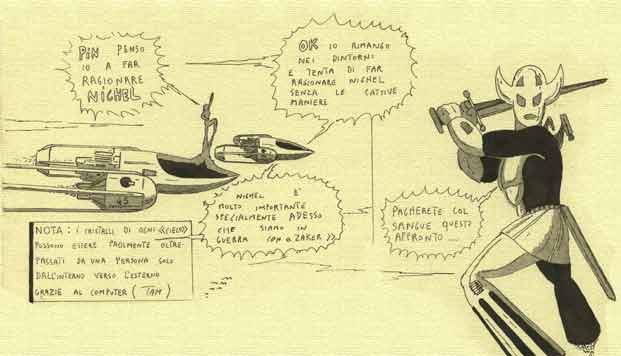 PIN PENSO
IO A FAR
RAGIONARE
NIGHEL
OK IO RIMANGO
NEI DINTORNI
E TENTA DI FAR
RAGIONARE NIGHEL
SENZA LE CATTIVE
MANIERE
NIGHEL E'
MOLTO IMPORTANTE
SPECIALMENTE ADESSO
CHE SIAMO IN
GUERRA CON
PAGHERETE COL
SANGUE QUESTO
AFFRONTO ...
NOTA: I CRISTALLI DI OGNI <<CIELO>>
POSSONO ESSERE FACILMENTE OLTRE-
PASSATI DA UNA PERSONA SOLO
DALL'INTERNO VERSO L'ESTERNO
GRAZIE AL COMPUTER (TAM)
45